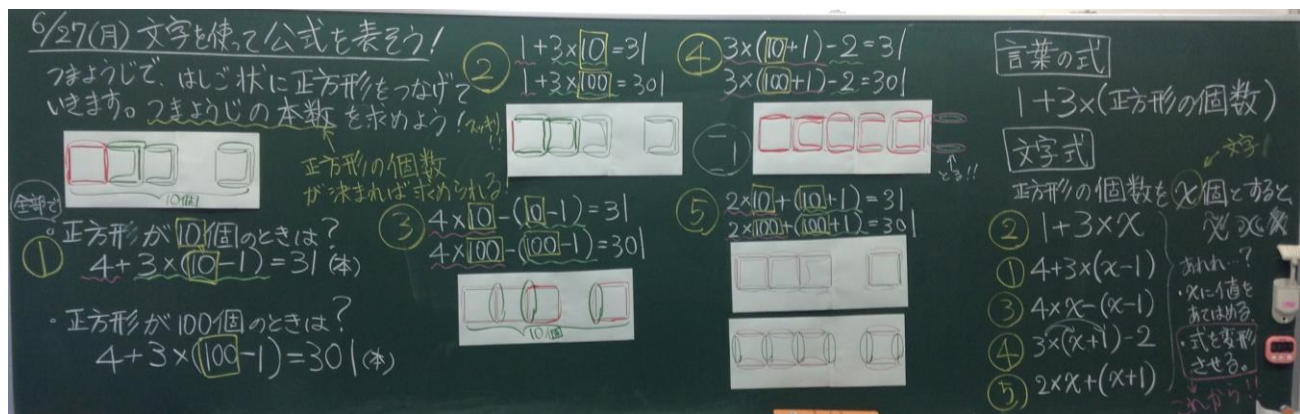 6/27(月) 文字を使って公式を表そう!
つまようじで、はしご状に正方形をつなげて
いきます。つまようじの本数を求めよう!
正方形の個数
が決まれば求められる!
10個
全部で
・正方形が10個のときは?
① 4+3×(10-1)=31(本)
・正方形が100個のときは?
4+3×(100-1)=301(本)
② 1+3×10=31
1+3×100=301
スッキリ!!
③ 4×10-(10-1)=31
4×100-(100-1)=301
10個
④ 3×(10+1)-2=31
3×(100+1)-2=301
とる!!
⑤ 2×10+(10+1)=31
2×100+(100+1)=301
言葉の式
1+3×(正方形の個数)
文字式
文字
正方形の個数をx個とすると
② 1+3×x
① 4+3×(x-1)
③ 4×x-(x-1)
④ 3×(x+1)-2
⑤ 2×x+(x+1)
あれれ…?
・xに値を
あてはめる。
・式を変形
させる。
これから!!